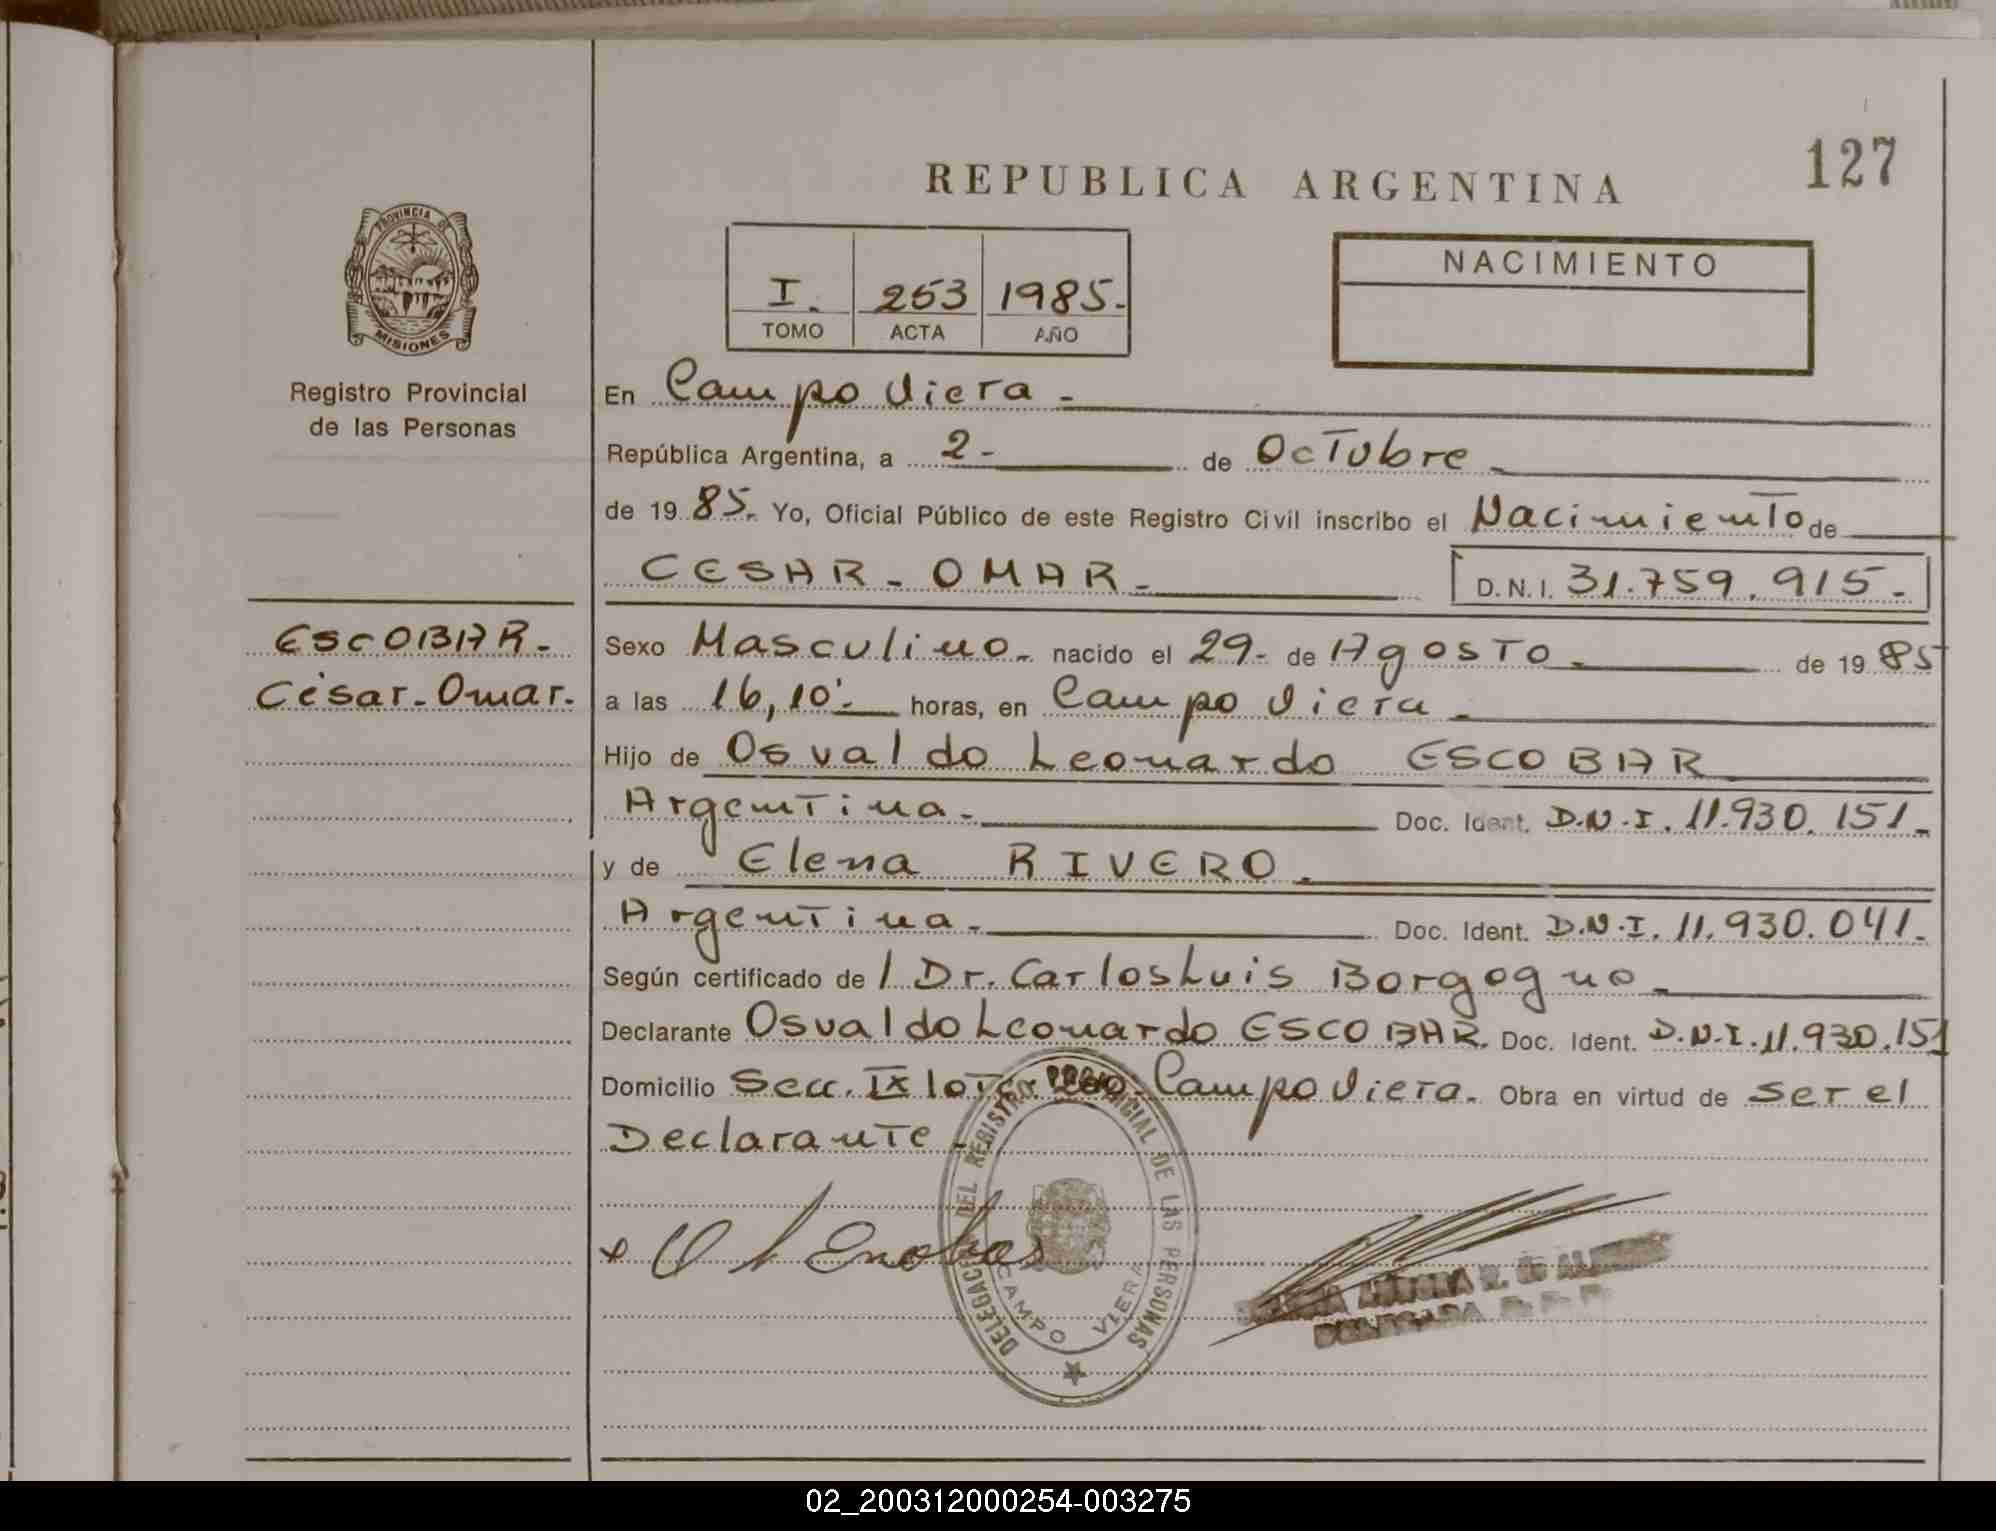 127
REPUBLICA ARGENTINA
PROVINCIA DE
MISIONES
Registro Provincial
de las Personas
I. 253 1985.-
TOMO ACTA AÑO
NACIMIENTO
En Campo Viera.-
República Argentina, a 2- de Octubre
de 1985. Yo, Oficial Público de este Registro Civil inscribo el Nacimiento de
CESAR - OMAR.- D.N.I. 31.759.915.-
ESCOBAR.-
César-Omar.-
Sexo Masculino.- nacido el 29.- de Agosto.- de 1985
a las 16,10'.- horas, en Campo Viera.-
Hijo de Osvaldo Leonardo ESCOBAR
Argentina.- Doc. Ident. D.N.I. 11.930.151.-
y de Elena RIVERO.
Argentina.- Doc. Ident. D.N.I. 11.930.041.-
Según certificado de / Dr. Carlos Luis Borgogno.-
Declarante Osvaldo Leonardo ESCOBAR. Doc. Ident. D.N.I. 11.930.151
Domicilio Secc. IX Campo Viera. Obra en virtud de ser el
Declarante.-
DELEGACION DEL REGISTRO PROVINCIAL DE LAS PERSONAS
CAMPO VIERA
DELEGADA
02_200312000254-003275